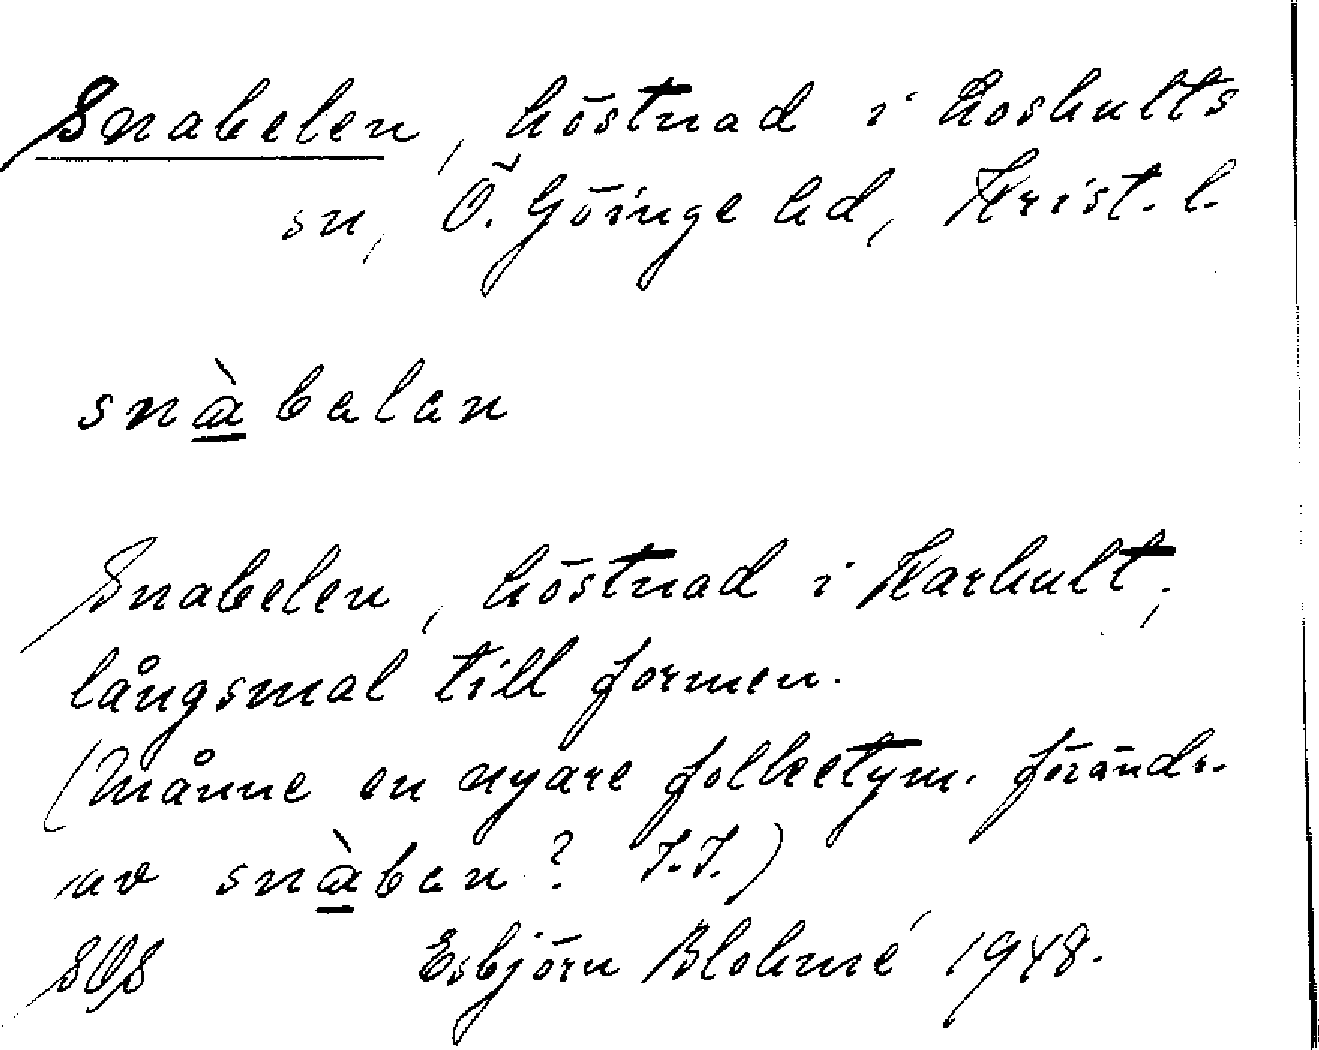 Snabelen, höstnad i Loshults
sn, Ö. Göinge hd, Krist. l.
snàbelen
Snabelen, höstnad i Harhult,
långsmal till formen.
(Månne en nyare folketym. förändr.
av snàben? I.I.)
SOS Esbjörn Blohmé 1948.